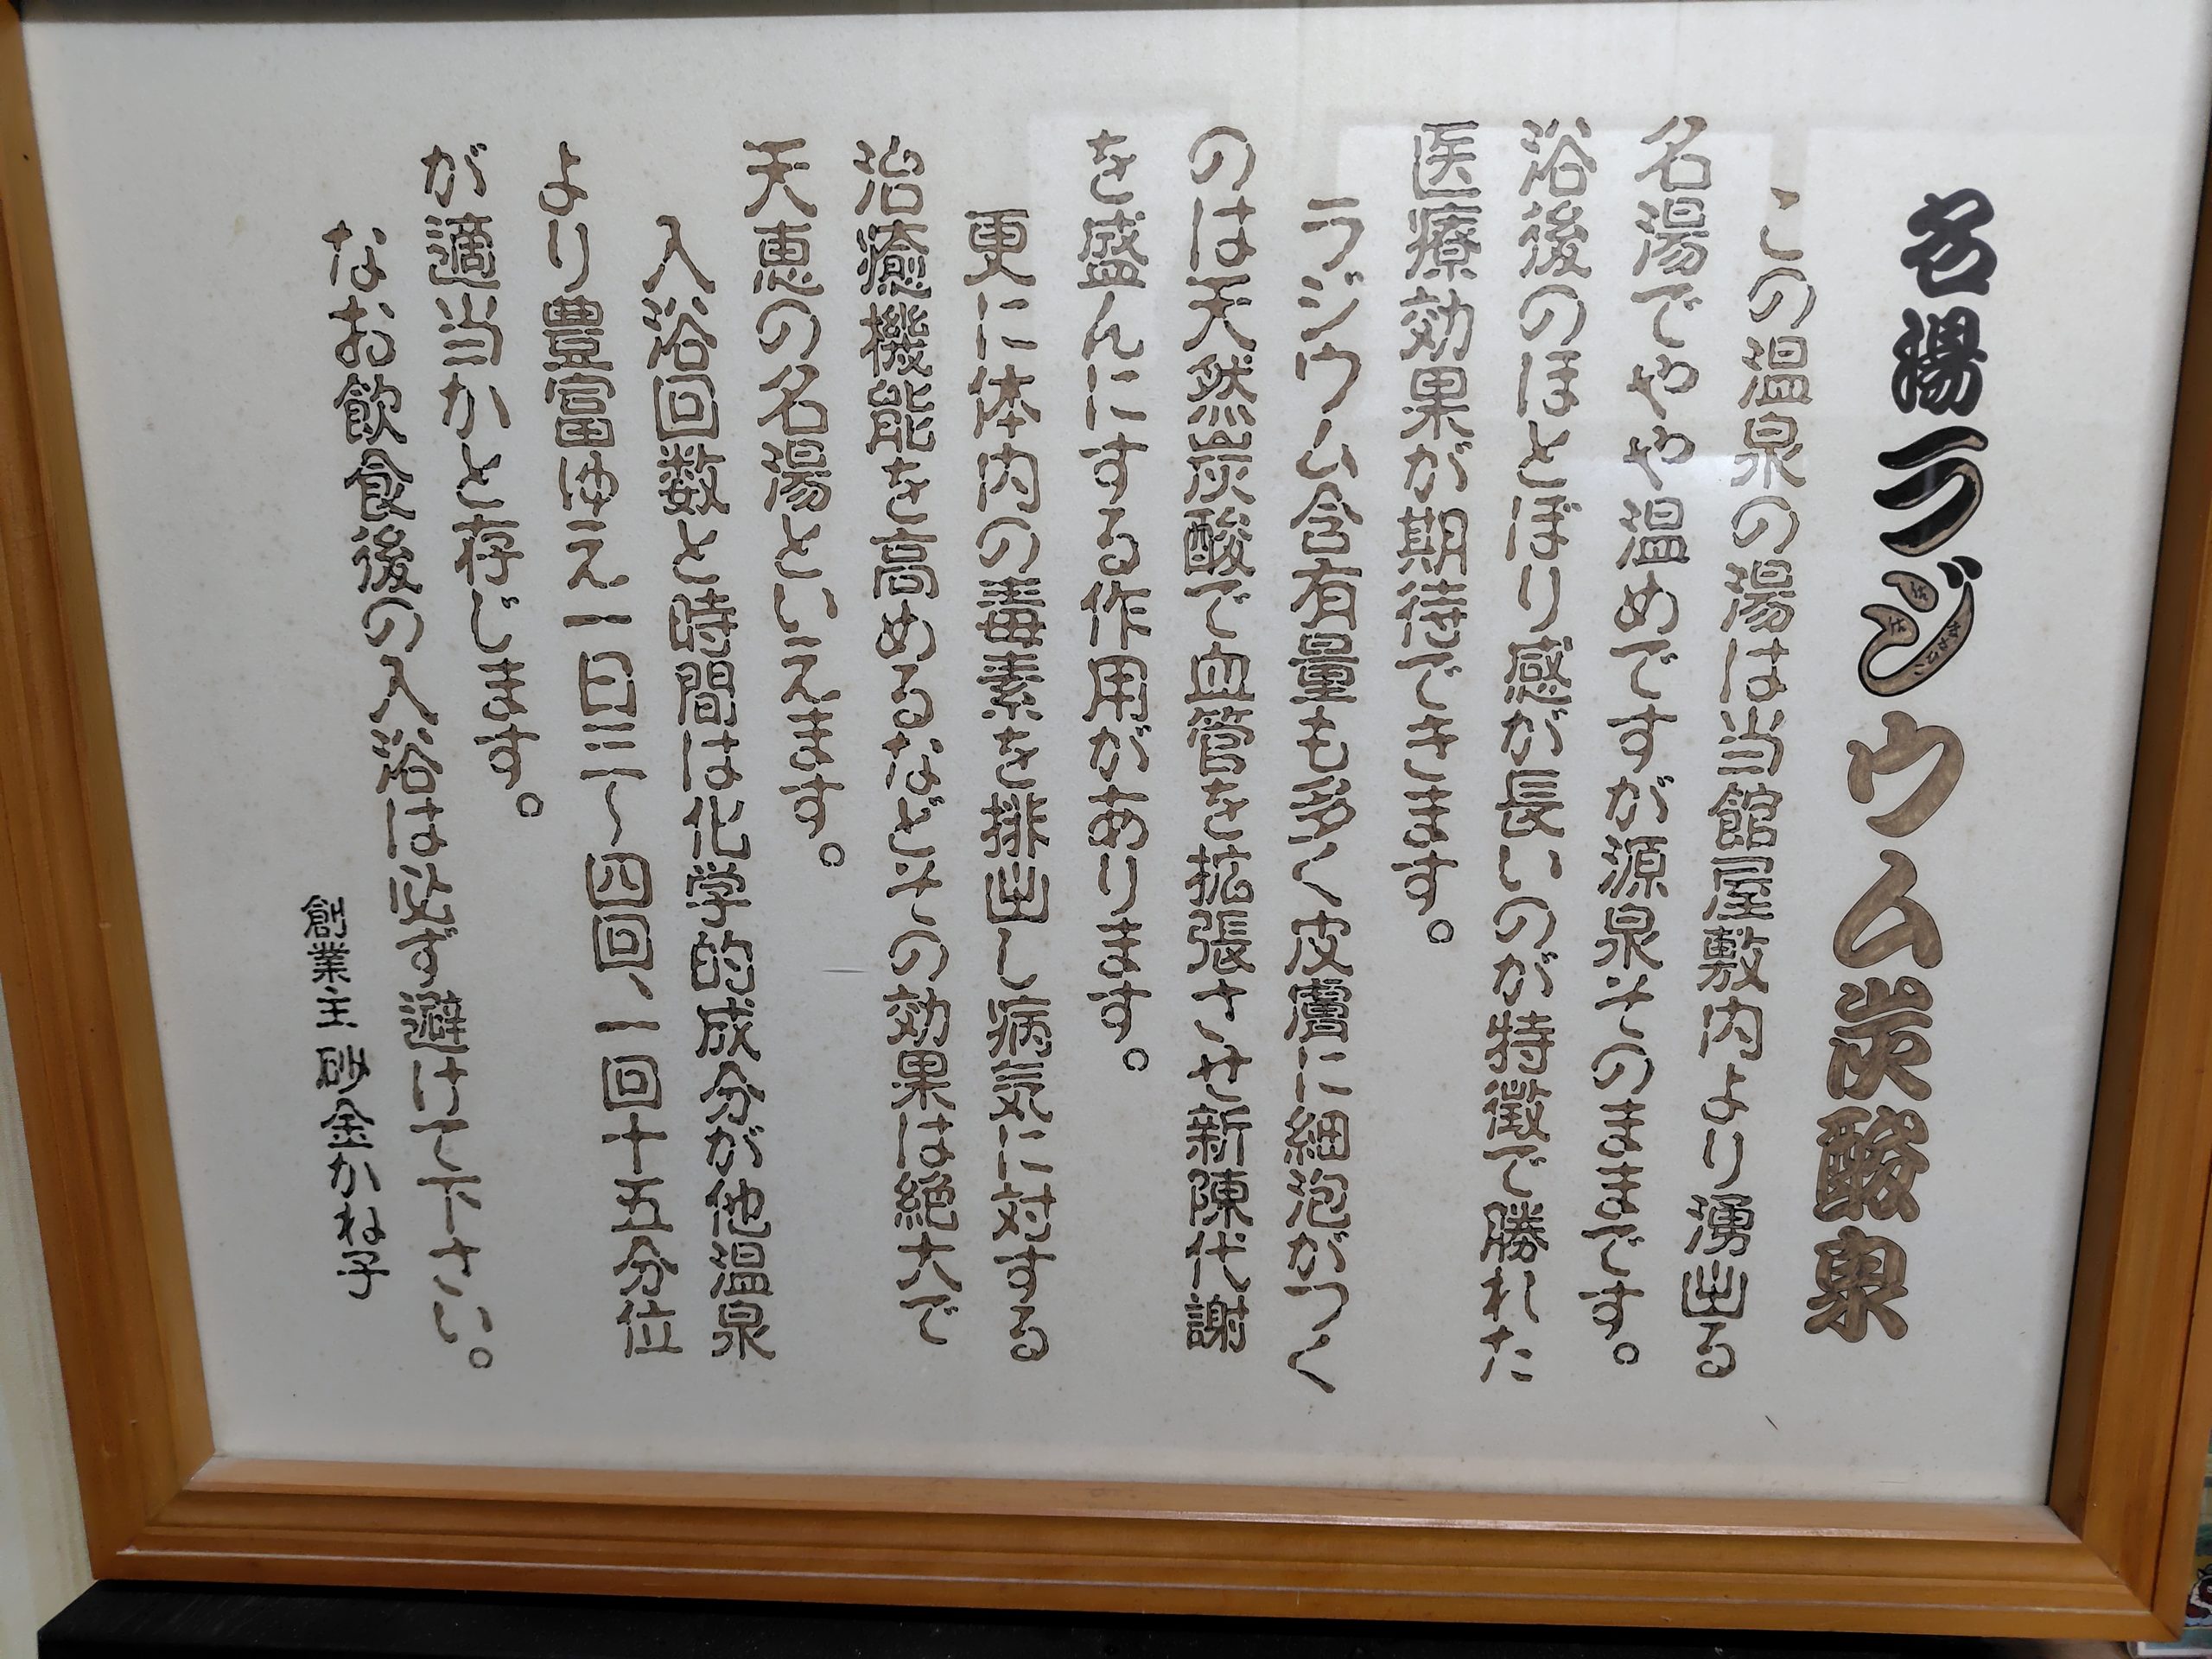 名湯ラジウム炭酸泉
この温泉の湯は当館屋敷内より湧出る
名湯でやや温めですが源泉そのままです。
浴後のほとぼり感が長いのが特徴で勝れた
医療効果が期待できます。
ラジウム含有量も多く皮膚に細泡がつく
のは天然炭酸で血管を拡張させ新陳代謝
を盛んにする作用があります。
更に体内の毒素を排出し病気に対する
治癒機能を高めるなどその効果は絶大で
天恵の名湯といえます。
入浴回数と時間は化学的成分が他温泉
より豊富ゆえ一日三〜四回、一回十五分位
が適当かと存じます。
なお飲食後の入浴は必ず避けて下さい。
創業主 砂金かね子